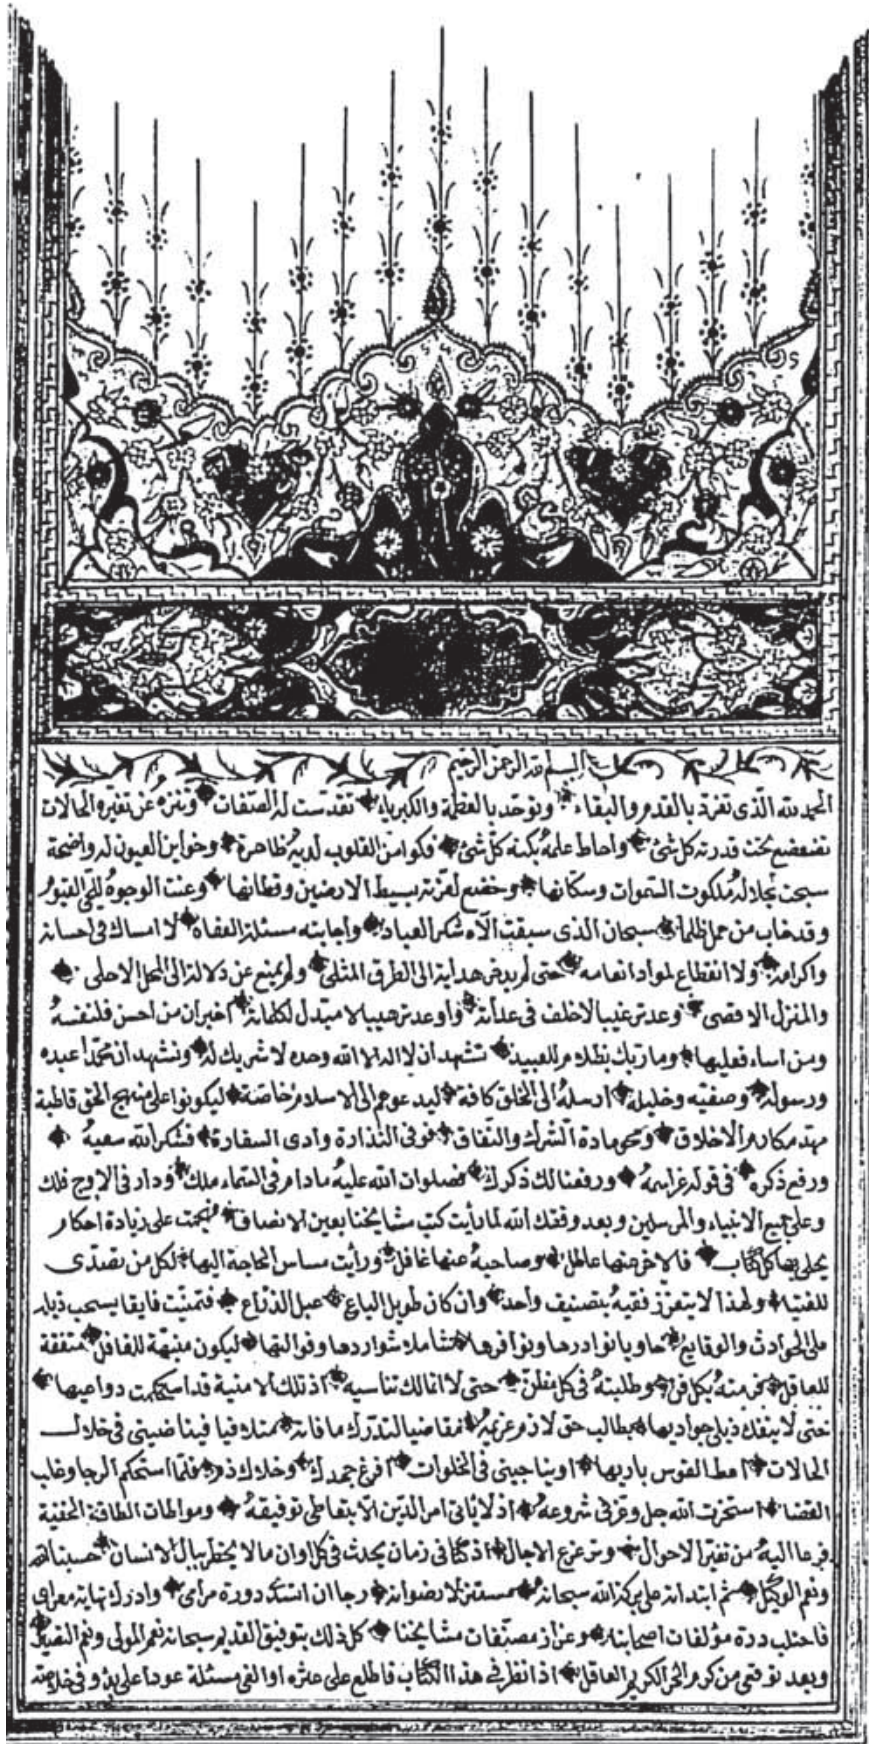 بسم الله الرحمن الرحيم
الحمد لله الذى تفرد بالقدم والبقاء وتوحد بالعظمة والكبرياء تقدست له الصفات وتنزه عن تغيره الحالات
تضعضع تحت قدرته كل شئ واحاط علمه بكنه كل شئ فكوامن القلوب لديه ظاهرة وخواين العيون له واضحة
سبحت بجلاله ملكوت السموات وسكانها وخضع لعزته بسيط الارضين وقطانها وعنت الوجوه للحى القيوم
وقد خاب من حمل ظلما سبحان الذى سبقت آلاءه شكر العباد واجابته مسئلة العفاة لا امساك فى احسانه
واكرامه ولا انقطاع لمواد انعامه حتى لم يدخر هداية الى الطرق المثلى ولم يمنع عن دلالة الى المحل الاحلى
والمنزل الاقصى وعد ترغيبا لا خلف فى عداته واوعد ترهيبا لا مبدل لكلماته اخبر ان من احسن فلنفسه
ومن اساء فعليها وما ربك بظلام للعبيد نشهد ان لا اله الا الله وحده لا شريك له ونشهد ان محمدا عبده
ورسوله وصفيه وخليله ارسله الى الخلق كافة ليدعوهم الى الاسلام خاصة ليكونوا على منهج الحق قاطبة
مهد مكارم الاخلاق ومحو مادة الشرك والنفاق فوفى النذارة وادى السفارة فشكر الله سعيه
ورفع ذكره فى قوله عز اسمه ورفعنا لك ذكرك فصلوات الله عليه مادام فى السماء ملك ودار فى الاوج فلك
وعلى جميع الانبياء والمرسلين وبعد وفقك الله لما رأيت كتب مشايخنا بعين الانصاف على زيادة احكام
يحلى بها كل كتاب فالآخر منها عاطل وصاحبه عنها غافل ورأيت مساس الحاجة اليها لكل من تصدى
للفتيا ولهذا لا يتعزز فقيه بتصنيف واحد وان كان طويل الباع عبل الذراع فتمنيت فايقا يسحب ذيله
على الحوادث والوقايع حاويا نوادرها ونوافرها شاملا شواردها ليكون منبهة للغافل منفقة
للعاقل بكل فن وطلبته فى كل مظن حتى لا اتمالك تناسيه اذ تلك الامنية قد دواعيها
حتى لا ينفك بطالب حق لازم غريمه متقاضيا لتدرك ما فاته فينا ضيبتى فى خلال
الحالات اعط القوس باريها او يناجينى فى الخلوات افرغ جهدك وخلاك ذم فلما استحكم الرجا وغلب
القضا استخرت الله جل وعز فى شروعه اذ لا يأتى امر الدين الا بتعاطى توفيقه ومواطات الطافه الخفية
فزعا اليه من تغير الاحوال وترعزع الاجال اذ كنا فى زمان يحدث فى كل اوان مالا يخطر ببال الانسان حسبنا الله
ونعم الوكيل ثم ابتدأته على بركة الله سبحانه مستنزلا رضوانه رجا ان دورة مرامى وادرك نهاية
فاحتلب درة مؤلفات اصحابنا مصنفات مشايخنا كل ذلك بتوفيق القديم سبحانه نعم المولى ونعم النصير
وبعد توقعى من كرم الحر الكريم العاقل اذا نظر فى هذا الكتاب فاطلع على عثرة او القى مسئلة عودا على بدؤ وفى